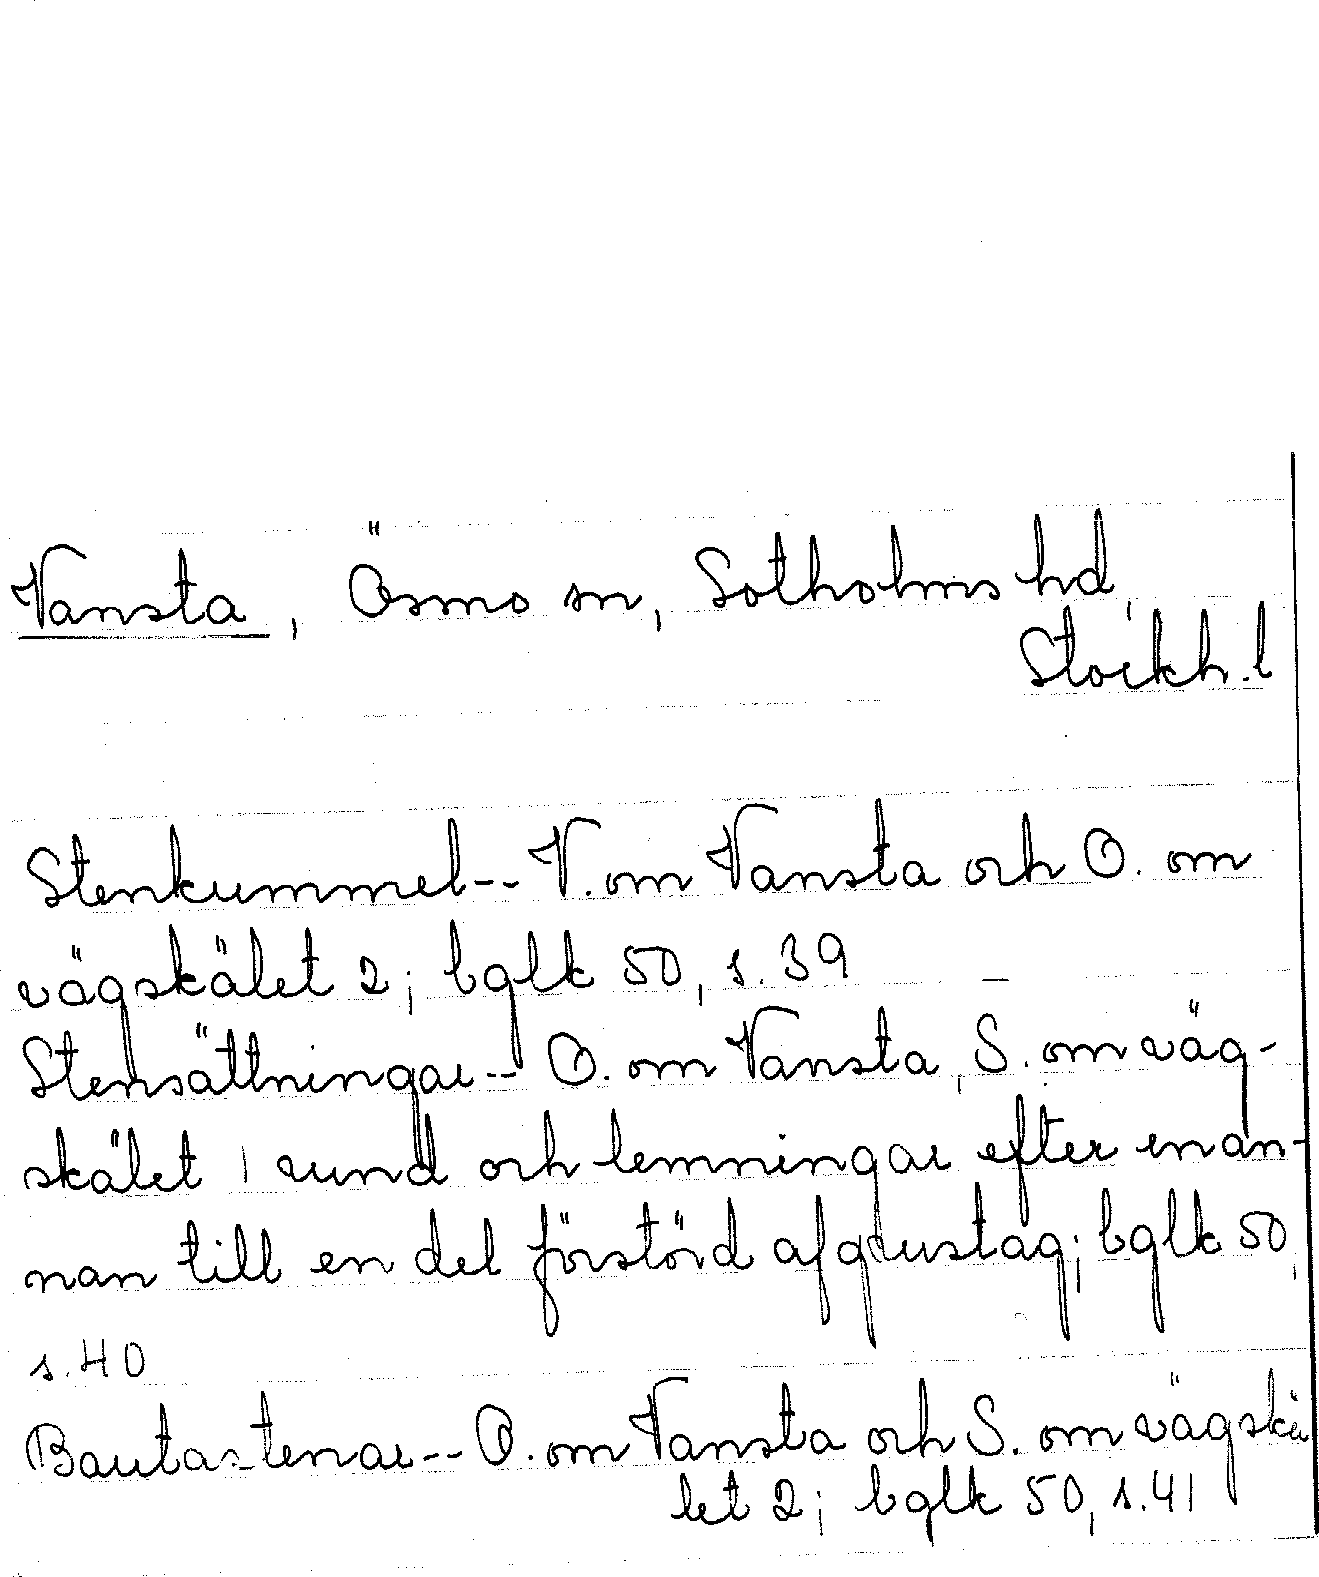 Vansta, Ösmo sn, Sotholms hd,
Stockh. l
Stenkummel-- V. om Vansta och O. om
vägskälet 2; bglk 50, s. 39
Stensättningar-- O. om Vansta, S. om väg-
skälet 1 rund och lemningar efter en an-
nan till en del förstörd afgrustag; bglk 50,
s. 40
Bautastenar-- O. om Vansta och S. om vägskä
let 2; bglk 50, s. 41